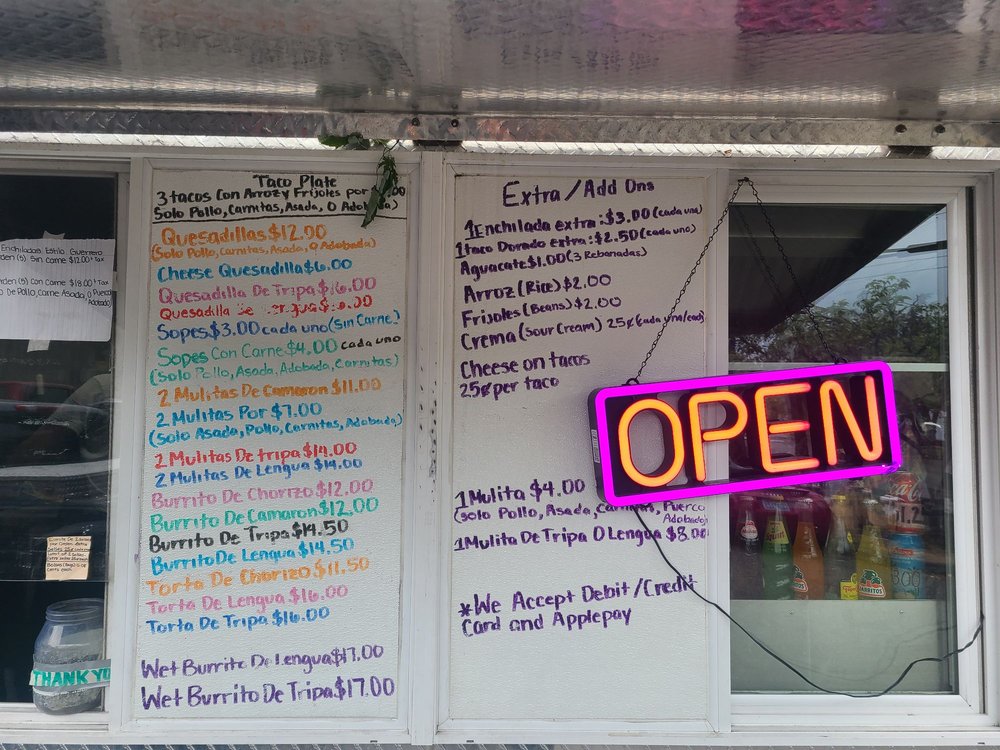 Enchiladas Estilo Guerrero
Orden (5) Sin Carne $12.00 + tax
Orden (5) Con Carne $18.00 + Tax
Taco Plate
3 tacos Con Arroz y Frijoles por
Solo Pollo, Carnitas, Asada, O Adobada)
Quesadillas $12.00
(Solo Pollo, Carnitas, Asada, O Adobada)
Cheese Quesadilla $6.00
Quesadilla De Tripa $16.00
Quesadilla
Sopes $3.00 cada uno (Sin Carne)
Sopes Con Carne $4.00 cada uno
(Solo Pollo, Asada, Adobada, Carnitas)
2 Mulitas De Camaron $11.00
2 Mulitas Por $7.00
(Solo Asada, Pollo, Carnitas, Adobada)
2 Mulitas De tripa $14.00
2 Mulitas De Lengua $14.00
Burrito De Chorizo $12.00
Burrito De Camaron $12.00
Burrito De Tripa $14.50
Burrito De Lengua $14.50
Torta De Chorizo $11.50
Torta De Lengua $16.00
Torta De Tripa $16.00
Wet Burrito De Lengua $17.00
Wet Burrito De Tripa $17.00
Extra / Add Ons
1 Enchilada extra: $3.00 (cada una)
1 taco Dorado extra: $2.50 (cada uno)
Aguacate $1.00 (3 Rebanadas)
Arroz (Rice) $2.00
Frijoles (Beans) $2.00
Crema (Sour Cream) 25¢ (cada una/each)
Cheese on tacos
25¢ per taco
1 Mulita $4.00
(Solo Pollo, Asada, Carnitas, Puerco
Adobado)
1 Mulita De Tripa O Lengua $8.00
*We Accept Debit / Credit
Card and Applepay
OPEN
THANK YOU
JARRITOS